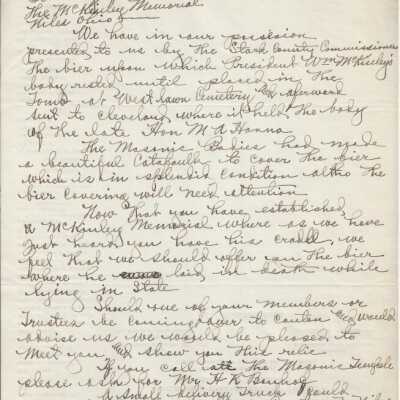 The McKinley Memorial
Niles Ohio
We have in our possesion
presented to us by the Stark County Commissioners
the bier upon which President Wm McKinley's
body rested until placed in the
Tomb at West Lawn Cemetery and afterward
sent to Cleveland where it held the body
of the late Hon M A Hanna
The Masonic Bodies had made
a beautiful Catafaulk to cover the bier
which is in splendid condition altho the
bier covering will need attention
Now that you have established
a McKinley Memorial where as we have
just heard you have his cradle, we
feel that we should offer you the bier
where he laid in death while
lying in State
Should one of your members or
Trustees be coming over to Canton and would
advise us we would be pleased to
meet you and show you this relic
If you call at the Masonic Temple
please ask for Mr. H R
a small delivery truck could